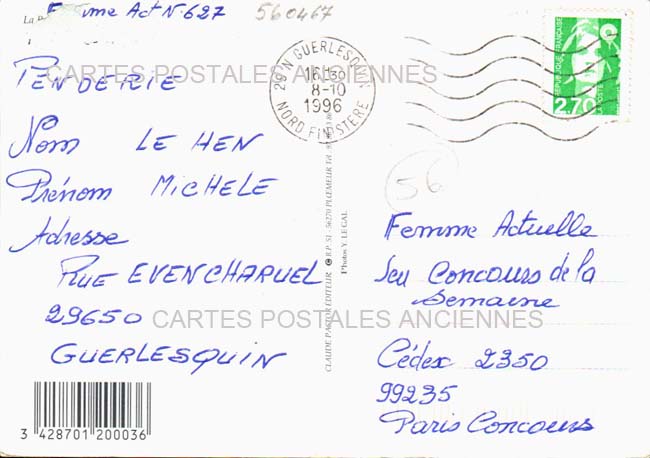 Femme Act N° 627
560467
PENDERIE
CARTES POSTALES ANCIENNES
Nom LE HEN
Prénom MICHELE
Adresse
RUE EVENCHARUEL
29650
GUERLESQUIN
3 428701 200036
29 N GUERLESQUIN
16H30
8-10
1996
NORD FINISTERE
REPUBLIQUE FRANÇAISE
2,70
LA POSTE
56
CLAUDE PASTOR EDITEUR B.P. 51 - 56270 PLOEMEUR
Photos Y. LEGAL
Femme Actuelle
Jeu Concours de la
Semaine
CARTES POSTALES ANCIENNES
Cédex 2350
99235
Paris Concours